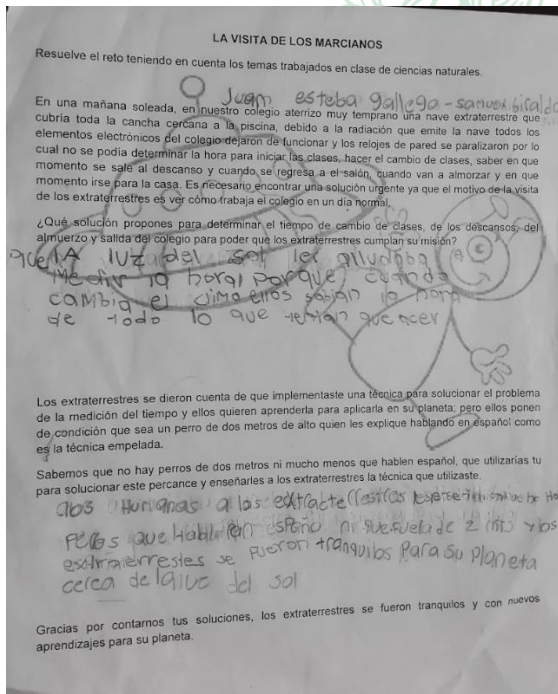 LA VISITA DE LOS MARCIANOS
Resuelve el reto teniendo en cuenta los temas trabajados en clase de ciencias naturales.
Juan esteba gallego - samuel giraldo
En una mañana soleada, en nuestro colegio aterrizo muy temprano una nave extraterrestre que
cubría toda la cancha cercana a la piscina, debido a la radiación que emite la nave todos los
elementos electrónicos del colegio dejaron de funcionar y los relojes de pared se paralizaron por lo
cual no se podía determinar la hora para iniciar las clases, hacer el cambio de clases, saber en que
momento se sale al descanso y cuando se regresa a el salón, cuando van a almorzar y en que
momento irse para la casa. Es necesario encontrar una solución urgente ya que el motivo de la visita
de los extraterrestres es ver cómo trabaja el colegio en un día normal.
¿Qué solución propones para determinar el tiempo de cambio de clases, de los descansos, del
almuerzo y salida del colegio para poder que los extraterrestres cumplan su misión?
que lA luz del sol les alludaba
Medir la hora porque cuando
cambia el clima ellos sabian la hora
de todo lo que tenian que acer
Los extraterrestres se dieron cuenta de que implementaste una técnica para solucionar el problema
de la medición del tiempo y ellos quieren aprenderla para aplicarla en su planeta; pero ellos ponen
de condición que sea un perro de dos metros de alto quien les explique hablando en español como
es la técnica empelada.
Sabemos que no hay perros de dos metros ni mucho menos que hablen español, que utilizarías tu
para solucionar este percance y enseñarles a los extraterrestres la técnica que utilizaste.
Humanas a los
que ni de 2 y los
se fueron tranquilos Para su planeta
cerca de del sol
Gracias por contarnos tus soluciones, los extraterrestres se fueron tranquilos y con nuevos
aprendizajes para su planeta.